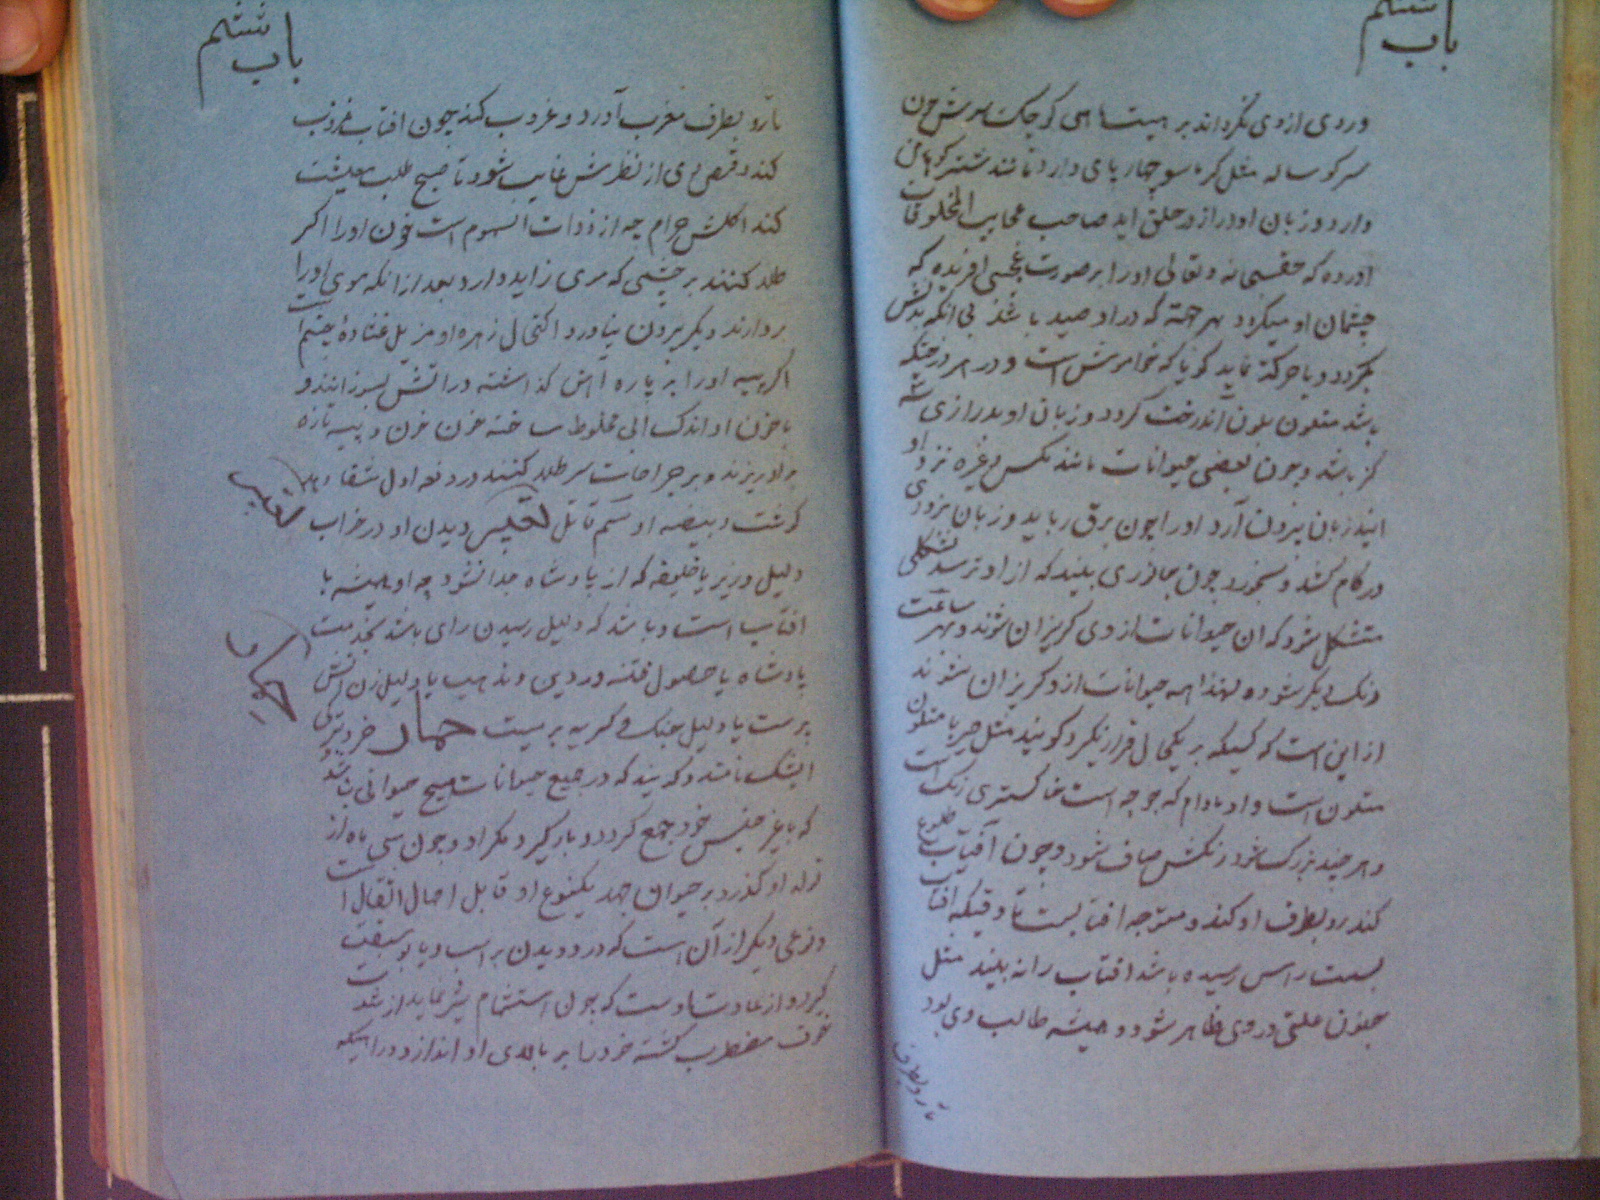 باب ششم
وردی ازوی نکرداند بر هیئت ماهی کوچک سرش چون
سر کوساله مثل کرباسو چهار پای دارد مانند شتر کوهانی
دارد و زبان او دراز در حلق اید صاحب عجایب المخلوقات
اورده که حقسبحانه و تعالی او را بر صورت عجبی افریده که
چشمان او میکردد بهر جهته که در او صید باشد بی انکه بدنش
بکردد و یا حرکة نماید کویا که خاموش است و در هر درختیکه
باشد متلون بلون اندرخت کردد و زبان او بدرازی سه
کز باشد و چون بعضی حیوانات مانند مکس و غیره نزد او
ایند زبان بیرون آرد او را چون برق رباید و زبان بزودی
در کام کشد و بخورد چون جانوری بیند که از او ترسد بشکلی
متشکل شود که ان حیوانات از وی کریزان شوند و بهر ساعت
رنک دیکر شود و لهذا همه حیوانات ازو کریزان شوند
از این است که کسیکه بر یکحال قرار نکیرد کویند مثل حربا متلون
متلون است و او مادام که جوجه است خاکستری رنک است
و هر چند بزرک شود رنکش صاف شود و چون آفتاب طلوع
کند رو بطرف او کند و متوجه افتابست تا وقتیکه افتاب
بسمت راس رسیده باشد افتاب را نه بیند مثل
جنون علتی در وی ظاهر شود و همیشه طالب وی بود
تا رو بطرف
باب ششم
تا رو بطرف مغرب آورد و غروب کند چون افتاب غروب
کند و قرص وی از نظرش غایب شود تا صبح طلب معیشت
کند اکلش حرام چه از ذوات السموم است خون او را اکر
طلا کنند بر چشمی که موی زاید دارد بعد از انکه موی او را
بردارند دیکر بیرون نیاورد اکتحال زهره او مزیل غشاوهٔ چشم است
اکر پیه او را بر پاره آهن کذاشته در اتش بسوزانند و
با خون او اندک ابی مخلوط ساخته خون و پیه تازه
بر او ریزند و بر جراحات سر طلا کنند در دفعه اول شفا دهد
کوشت و بیضه او سم قاتل تعبیر دیدن او در خواب
دلیل وزیر یا خلیفه که از پادشاه جدا نشود چه او همیشه با
افتاب است و باشد که دلیل رسیدن رای باشد بخدمت
پادشاه یا حصول فتنه در دین و مذهب یا دلیل زن اتش
پرست یا دلیل جنک و کریه بر میت حمار خر و بترکی
ایشک نامند و کویند که در جمیع حیوانات هیچ حیوانی نباشد
که با غیر جنس خود جمع کردد و بار کیرد مکر او و چون سی ماه از
تولد او کذرد بر حیوان جهد یکنوع او قابل احمال اثقال است
و نوعی دیکر از آن است که در دویدن بر اسب و یابو سبقت
کیرد و از عادت اوست که چون استشمام شیر نماید از شدت
خوف مضطرب کشته خود را بر بالای او اندازد و در اهیکه